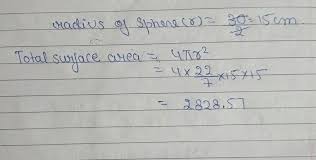 radius of sphere(r) = 30/2 = 15cm.
Total surface area = 4πr²
= 4 × 22/7 × 15 × 15
= 2828.57